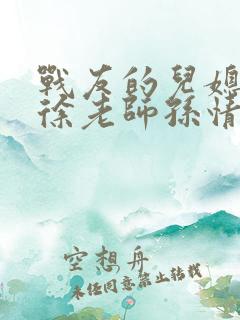 戰友的兒媳
徐老師孫情
空想舟
未經同意禁止转載